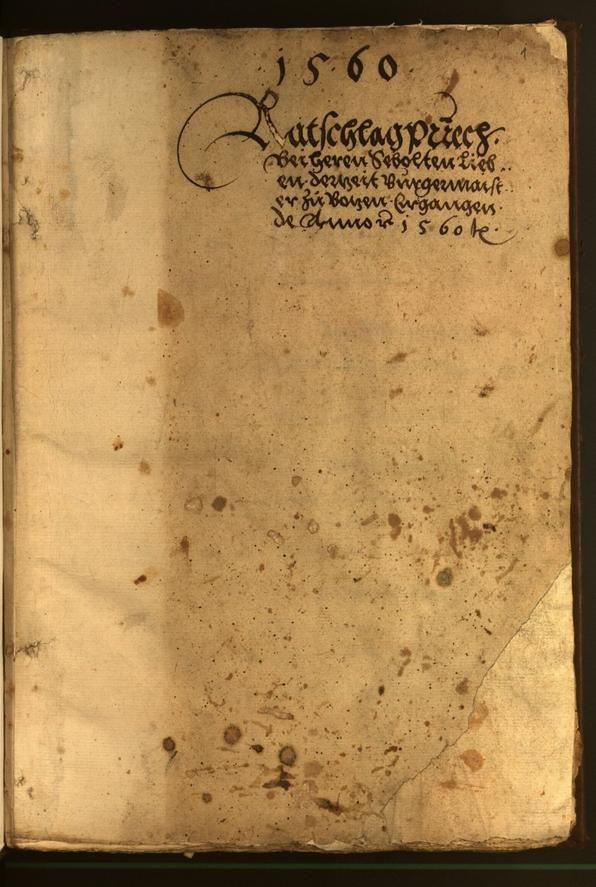 1560
1
Ratschlagpuech.
Bei Heren Sebolten Lieb
en derzeit Burgermaist
er zu Bozen Ergangen.
de Anno 1560